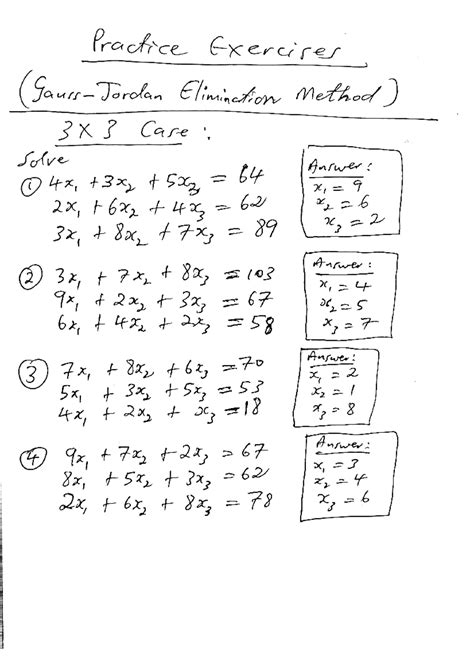 Practice Exercises
(Gauss-Jordan Elimination Method)
3X3 Case:
Solve
① 4x₁ + 3x₂ + 5x₃ = 64
2x₁ + 6x₂ + 4x₃ = 62
3x₁ + 8x₂ + 7x₃ = 89
Answer:
x₁ = 9
x₂ = 6
x₃ = 2
② 3x₁ + 7x₂ + 8x₃ = 103
9x₁ + 2x₂ + 3x₃ = 67
6x₁ + 4x₂ + 2x₃ = 58
Answer:
x₁ = 4
x₂ = 5
x₃ = 7
③ 7x₁ + 8x₂ + 6x₃ = 70
5x₁ + 3x₂ + 5x₃ = 53
4x₁ + 2x₂ + x₃ = 18
Answer:
x₁ = 2
x₂ = 1
x₃ = 8
④ 9x₁ + 7x₂ + 2x₃ = 67
8x₁ + 5x₂ + 3x₃ = 62
2x₁ + 6x₂ + 8x₃ = 78
Answer:
x₁ = 3
x₂ = 4
x₃ = 6